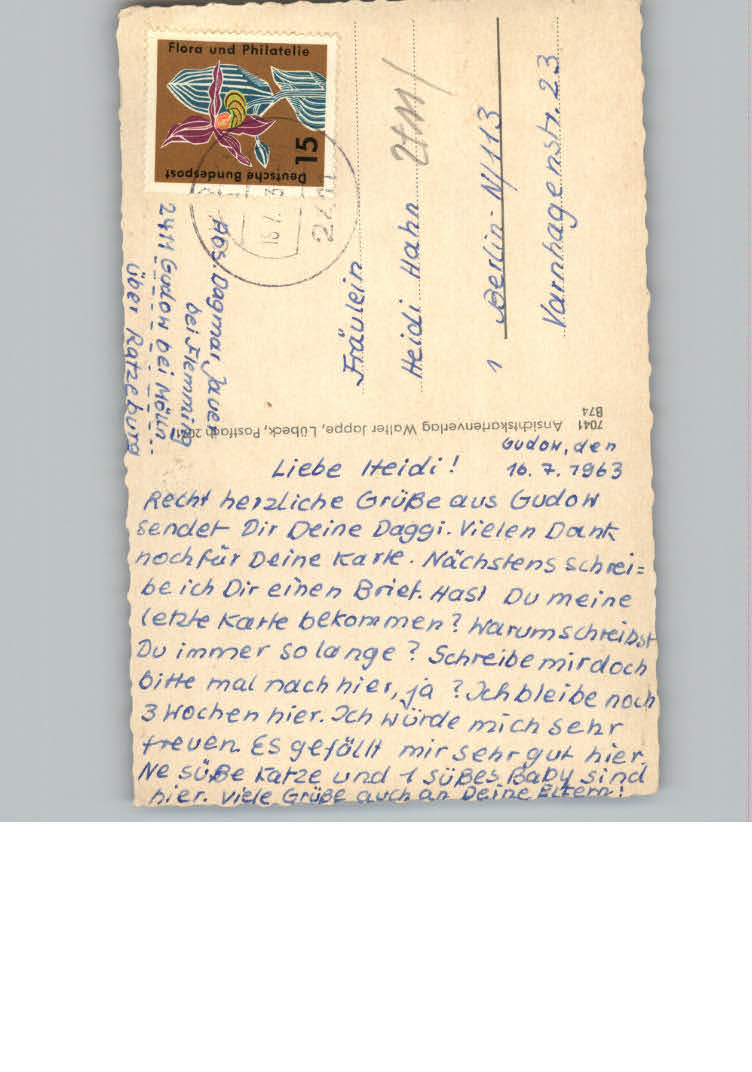 Flora und Philatelie
15
Deutsche Bundespost
Abs. Dagmar Jauer
bei Flemming
2411 Gudow bei Mölln
über Ratzeburg
Fräulein
Heidi Hahn
1 Berlin-N/113
Varnhagenstr. 23
7041 Ansichtskartenverlag Walter Jappe, Lübeck, Postfach
B74
Gudow, den
16.7.1963
Liebe Heidi!
Recht herzliche Grüße aus Gudow
sendet Dir Deine Daggi. Vielen Dank
noch für Deine Karte. Nächstens schrei=
be ich Dir einen Brief. Hast Du meine
letzte Karte bekommen? Warum schreibst
Du immer so lange? Schreibe mir doch
bitte mal nach hier, ja? Ich bleibe noch
3 Wochen hier. Ich würde mich sehr
freuen. Es gefällt mir sehr gut hier.
Ne süße Katze und 1 süßes Baby sind
hier. Viele Grüße auch an Deine Eltern!